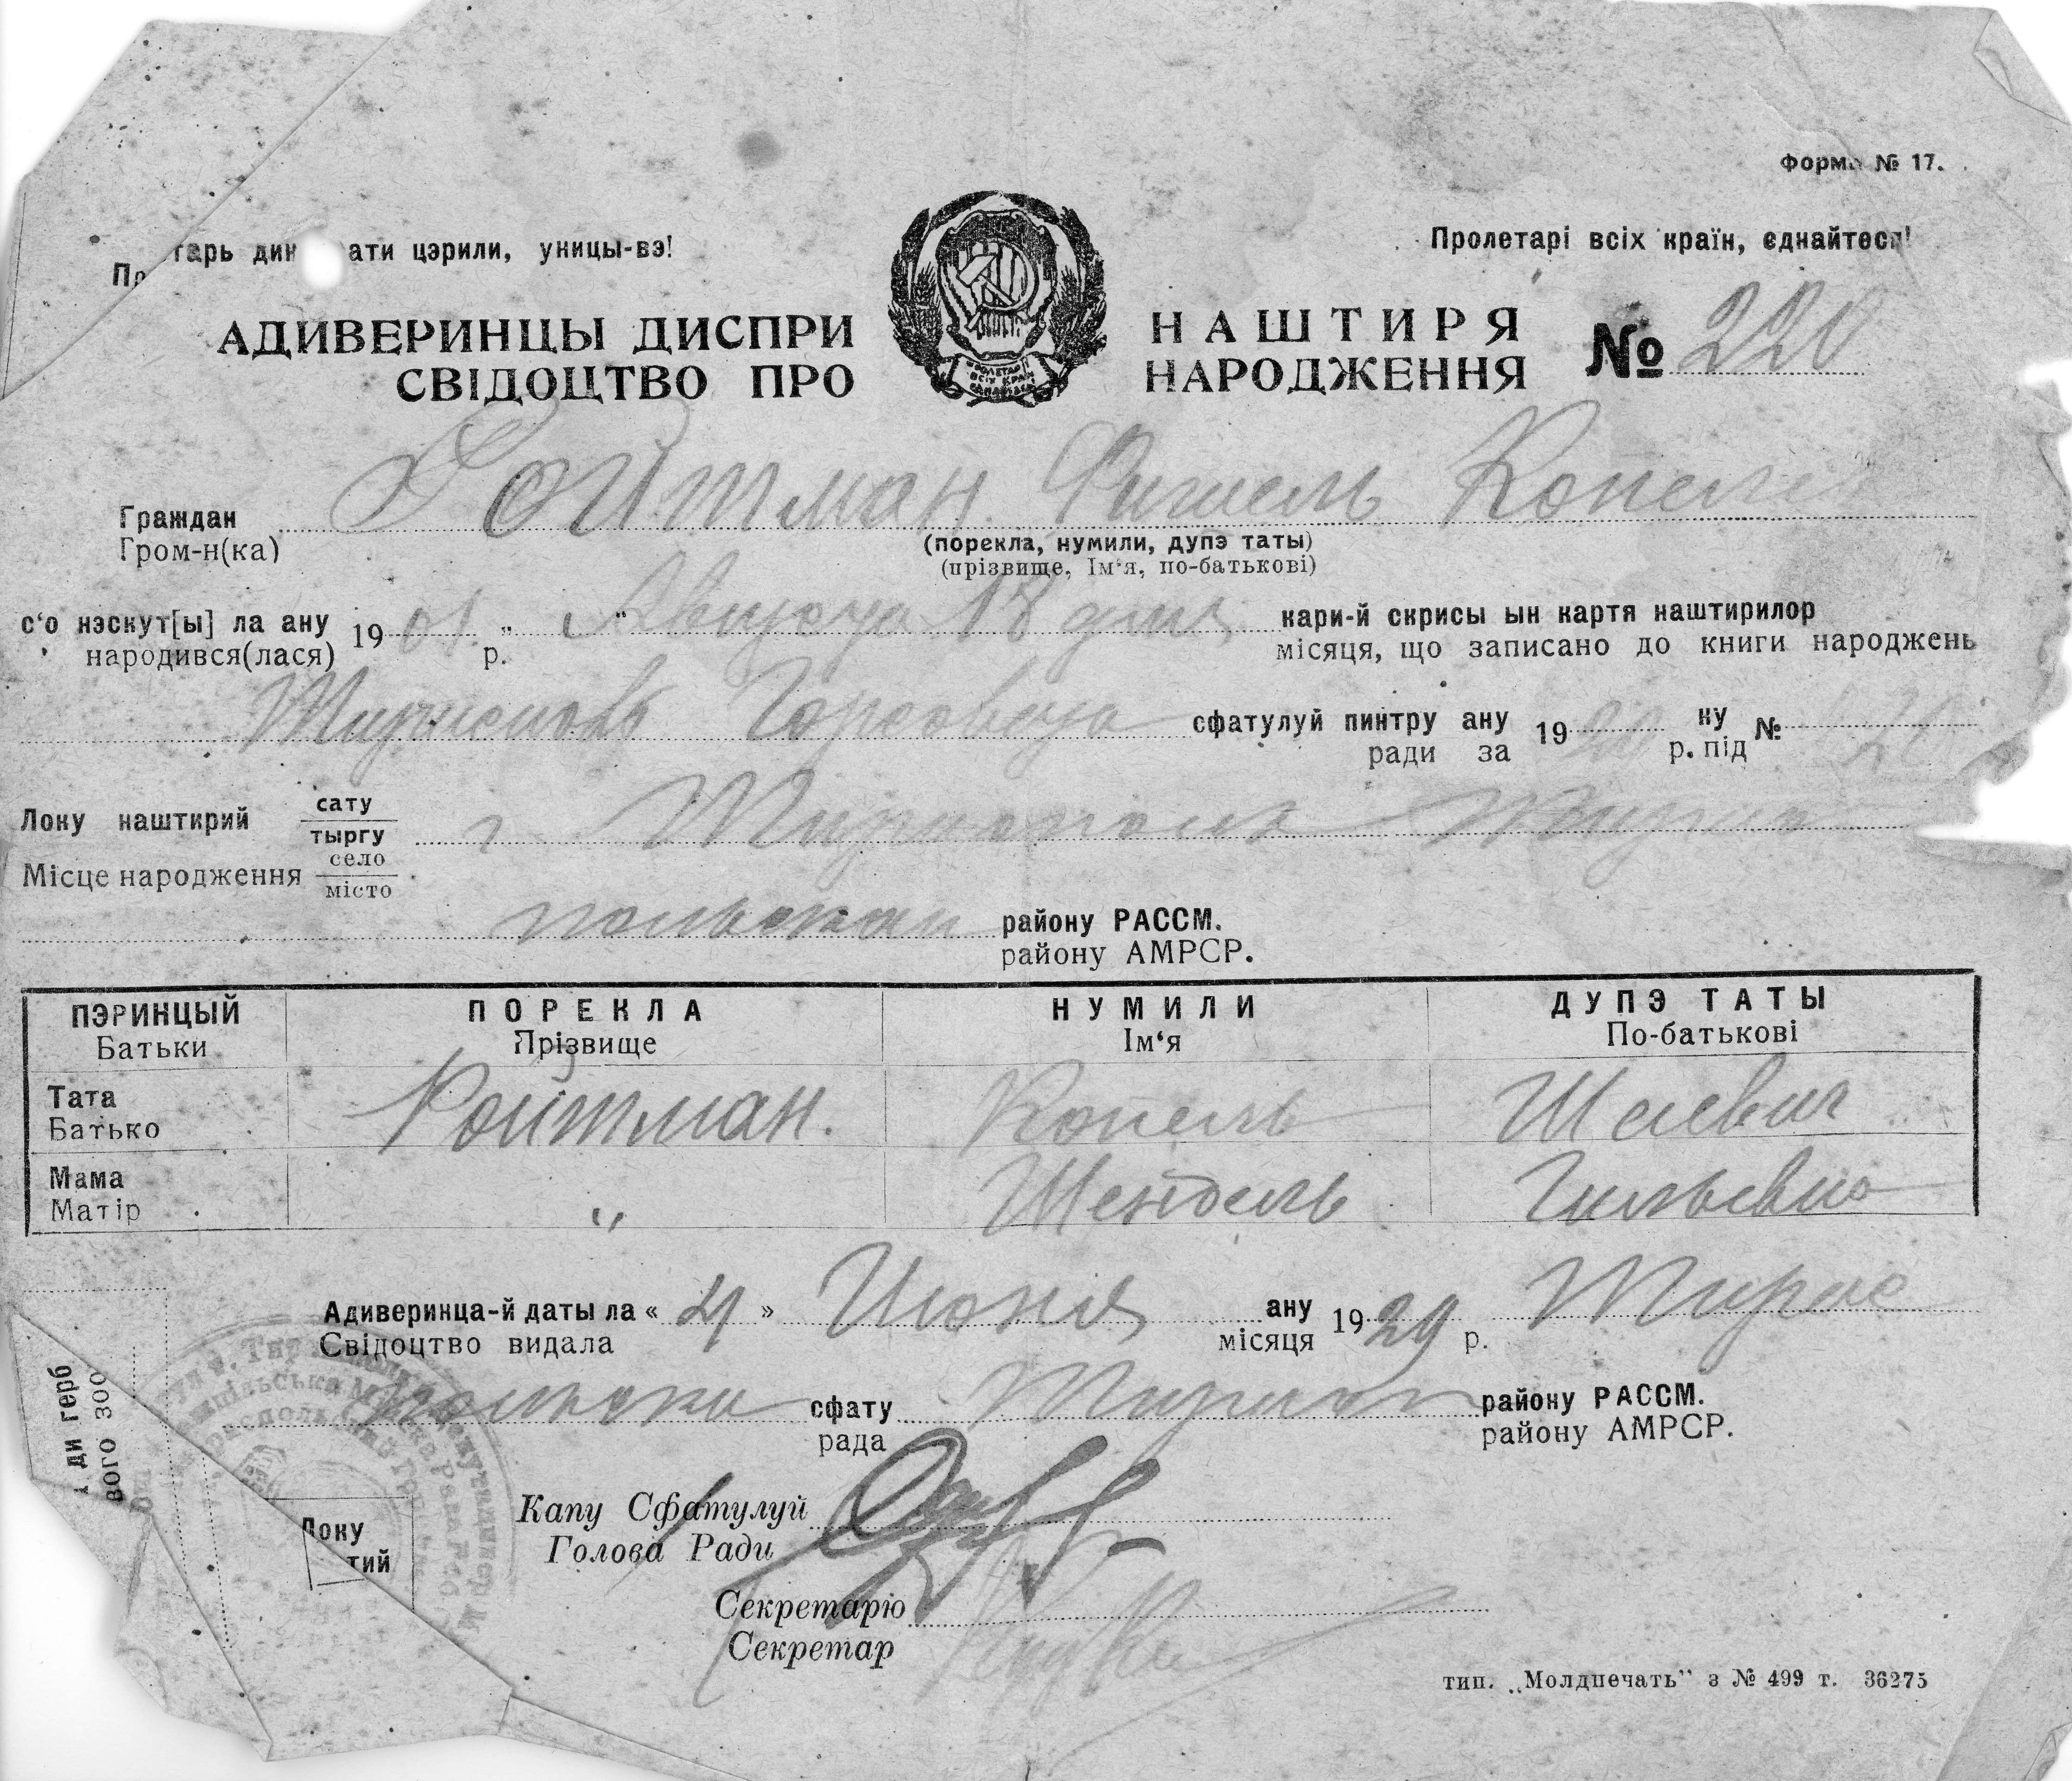 Форма № 17.
гарь дин ати цэрили, уницы-вэ!
Пролетарі всіх країн, єднайтеся!
АДИВЕРИНЦЫ ДИСПРИ НАШТИРЯ
СВІДОЦТВО ПРО НАРОДЖЕННЯ № 220
Граждан Ройтман Фишель Копел
Гром-н(ка)
(порекла, нумили, дупэ таты)
(прізвище, Ім‘я, по-батькові)
с‘о нэскут[ы] ла ану 19 01 " " Августа 18 дня кари-й скрисы ын картя наштирилор
народився(лася) р. місяця, що записано до книги народжень
сфатулуй пинтру ану 19 ну №
ради за р. під
Локу наштирий сату
тыргу г Тирасполь Тирас
Місце народження село
місто
польской району РАССМ.
району АМРСР.
ПЭРИНЦЫЙ ПОРЕКЛА НУМИЛИ ДУПЭ ТАТЫ
Батьки Прізвище Ім‘я По-батькові
Тата Ройтман. Копель
Батько
Мама " Шендель
Матір
Адиверинца-й даты ла « 4 » Июня ану 19 29 р. Тирас
Свідоцтво видала місяця
польски сфату Тирасп району РАССМ.
рада району АМРСР.
ди герб
вого зоо
Локу
тий
Капу Сфатулуй
Голова Ради
Секретарію
Секретар
тип. „Молдпечать" з № 499 т. 36275